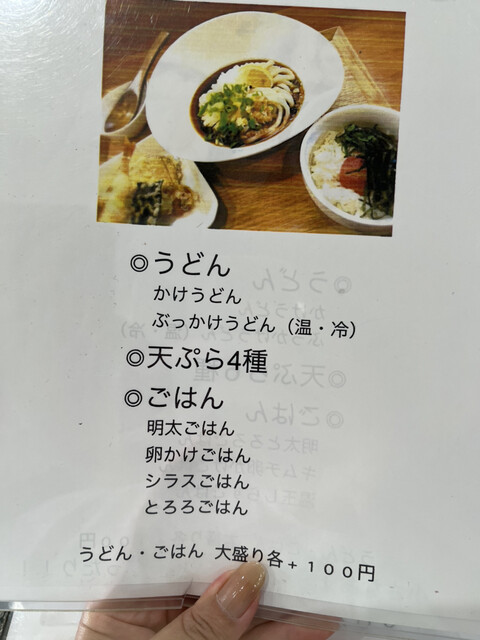 ◎うどん
かけうどん
ぶっかけうどん（温・冷）
◎天ぷら4種
◎ごはん
明太ごはん
卵かけごはん
シラスごはん
とろろごはん
うどん・ごはん 大盛り各＋１００円